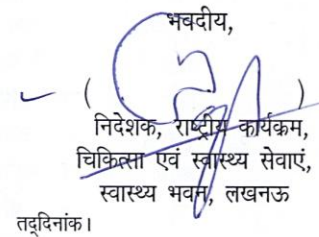 भवदीय,
( )
निदेशक, राष्ट्रीय कार्यक्रम,
चिकित्सा एवं स्वास्थ्य सेवाएं,
स्वास्थ्य भवन, लखनऊ
तद्दिनांक।